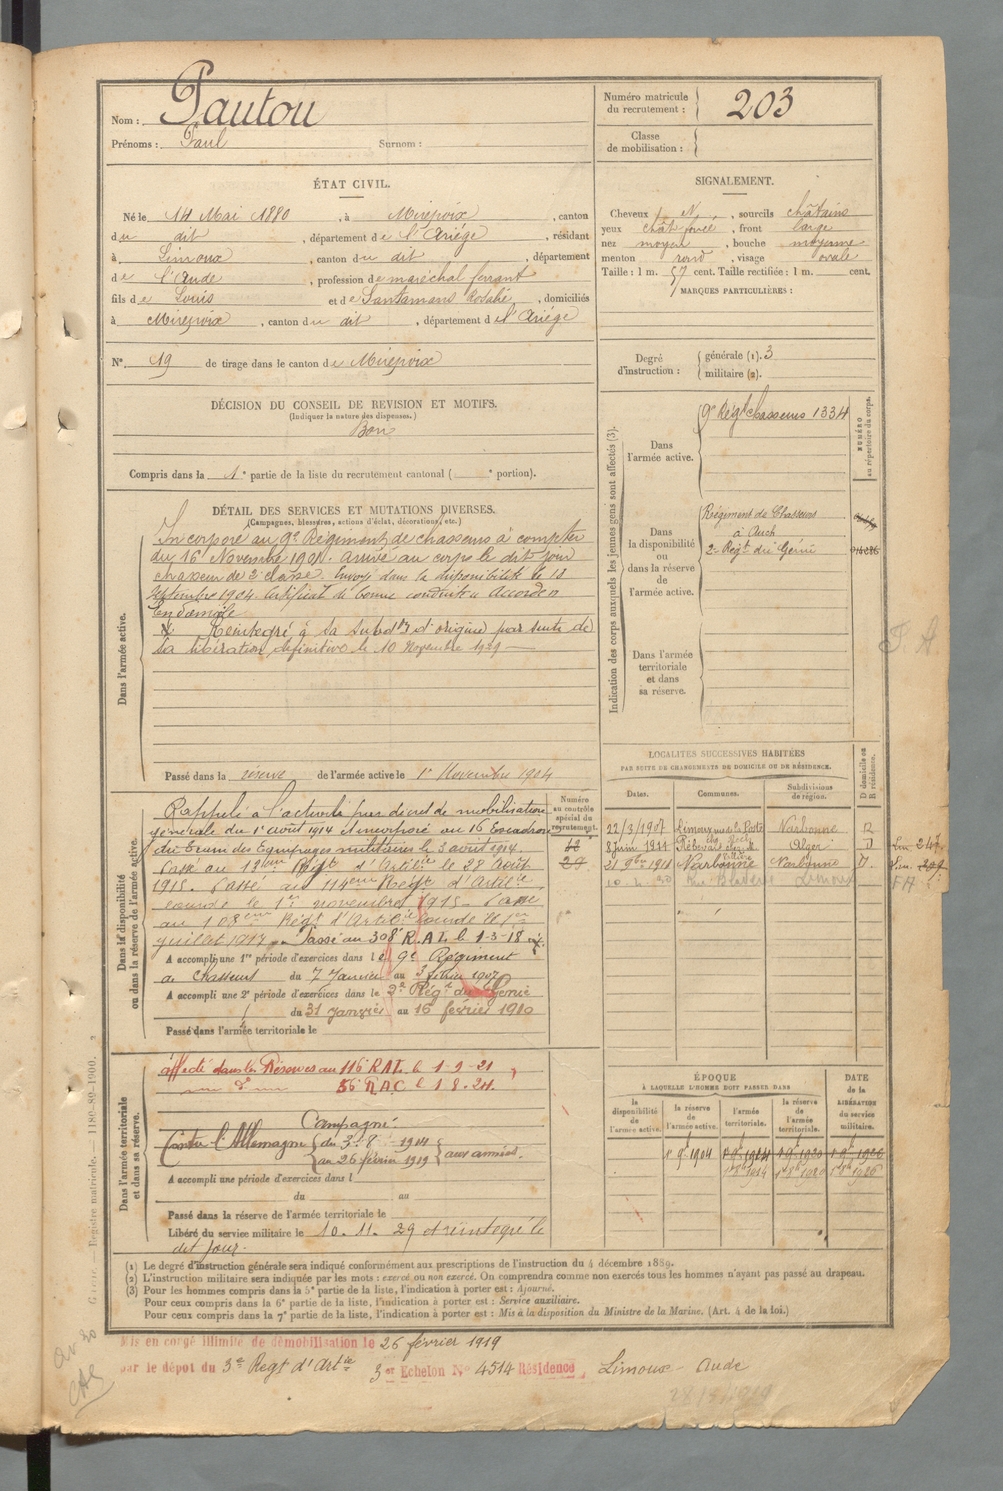 Nom : Pautou
Prénoms : Paul Surnom :
Numéro matricule du recrutement : 203
Classe de mobilisation :
ÉTAT CIVIL.
Né le 14 Mai 1880, à Mirepoix, canton
du dit, département de l'Ariége, résidant
à Limoux, canton du dit, département
de l'Aude, profession de maréchal ferrant
fils de Louis et de Santamans Rosalie, domiciliés
à Mirepoix, canton du dit, département de l'Ariége
N° 19 de tirage dans le canton de Mirepoix
SIGNALEMENT.
Cheveux N, sourcils châtains
yeux chât foncé, front large
nez moyen, bouche moyenne
menton rond, visage ovale
Taille : 1 m. 57 cent. Taille rectifiée : 1 m. cent.
MARQUES PARTICULIÈRES :
Degré d'instruction : générale (1). 3
militaire (2).
DÉCISION DU CONSEIL DE REVISION ET MOTIFS.
(Indiquer la nature des dispenses.)
Bon
Compris dans la 1e partie de la liste du recrutement cantonal ( e portion).
DÉTAIL DES SERVICES ET MUTATIONS DIVERSES.
(Campagnes, blessures, actions d'éclat, décorations, etc.)
Dans l'armée active.
Incorporé au 9e Régiment de chasseurs à compter
du 16 Novembre 1901. arrivé au corps le dit jour
chasseur de 2e classe. Envoyé dans la disponibilité le 18
Septembre 1904. Certificat de bonne conduite "Accordé"
Réintegré à sa subdon d'origine par suite de
sa libération définitive le 10 Novembre 1929
Passé dans la réserve de l'armée active le 1er Novembre 1904
Indication des corps auxquels les jeunes gens sont affectés (3).
NUMÉRO au répertoire du corps.
Dans l'armée active.
9e Régt chasseurs 1334
Dans la disponibilité ou dans la réserve de l'armée active.
Régiment de Chasseurs
à Auch
2e Régt du Génie
Dans l'armée territoriale et dans sa réserve.
Dans la disponibilité ou dans la réserve de l'armée active.
Numéro au contrôle spécial du recrutement.
Rappelé à l'activité par décret de mobilisation
générale du 1er août 1914 et incorporé au 16 Escadron
du Train des Equipages militaires le 3 août 1914.
Passé au 13ème Régt d'Artilie le 28 Août
1915. Passé au 114eme Regt d'Artie
lourde le 1er novembre 1915 Passé
au 108eme Régt d'Artilie lourde le 1er
juillet 1917 Passé au 308e R.A.L. le 1-3-18
A accompli une 1re période d'exercices dans le 9e Régiment
de Chasseurs du 7 Janvier au 3 février 1907
A accompli une 2e période d'exercices dans le 2e Régt du Génie
du 31 janvier au 16 février 1910
Passé dans l'armée territoriale le
LOCALITÉS SUCCESSIVES HABITÉES
PAR SUITE DE CHANGEMENTS DE DOMICILE OU DE RÉSIDENCE.
Dates. Communes. Subdivisions de région. D domicile ou R résidence.
22/3/1907 Limoux Narbonne R
8 juin 1911 Alger D
21 9bre 1918 Narbonne Narbonne D.
Limoux
Dans l'armée territoriale et dans sa réserve.
affecté dans les Réserves au 116e R.A.L. le 1-9-21
56e R.A.C. le 1.8.24.
Campagne.
Contre l'Allemagne du 3-8-1904
au 26 février 1919 aux armées.
A accompli une période d'exercices dans l
du au
Passé dans la réserve de l'armée territoriale le
Libéré du service militaire le 10.11.29 et réintegré le
dit jour.
ÉPOQUE
À LAQUELLE L'HOMME DOIT PASSER DANS
la disponibilité de l'armée active. la réserve de l'armée active. l'armée territoriale. la réserve de l'armée territoriale.
DATE de la LIBÉRATION du service militaire.
1er 9bre 1904 1er 9bre 1914 1er 9bre 1920 1er 9bre 1926
(1) Le degré d'instruction générale sera indiqué conformément aux prescriptions de l'instruction du 4 décembre 1889.
(2) L'instruction militaire sera indiquée par les mots : exercé ou non exercé. On comprendra comme non exercés tous les hommes n'ayant pas passé au drapeau.
(3) Pour les hommes compris dans la 5e partie de la liste, l'indication à porter est : Ajourné.
Pour ceux compris dans la 6e partie de la liste, l'indication à porter est : Service auxiliaire.
Pour ceux compris dans la 7e partie de la liste, l'indication à porter est : Mis à la disposition du Ministre de la Marine. (Art. 4 de la loi.)
Mis en congé illimité de démobilisation le 26 février 1919
par le dépot du 3e Regt d'Artie 3er Echelon N° 4514 Résidence Limoux - Aude
Registre matricule. 1180-89-1900.